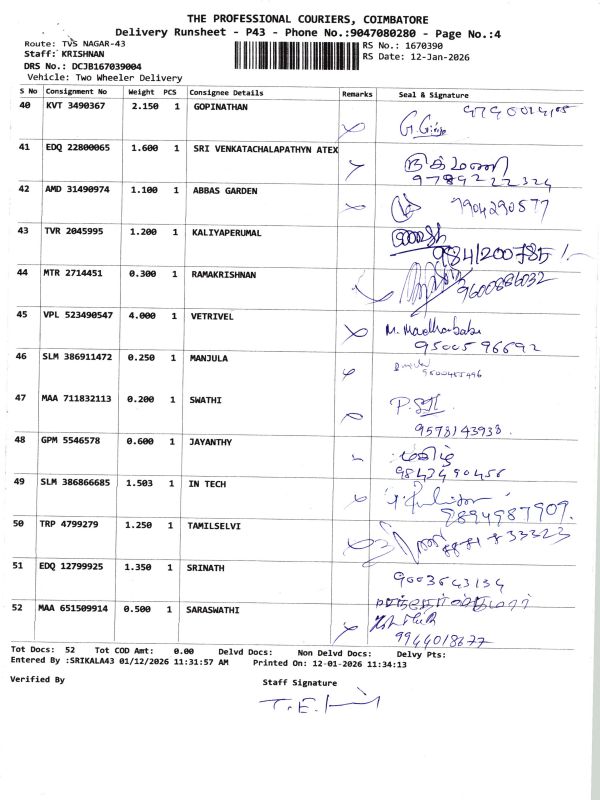 THE PROFESSIONAL COURIERS, COIMBATORE
Delivery Runsheet - P43 - Phone No.:9047080280 - Page No.:4
Route: TVS NAGAR-43
RS No.: 1670390
Staff: KRISHNAN
RS Date: 12-Jan-2026
DRS No.: DCJB167039004
Vehicle: Two Wheeler Delivery
S No Consignment No Weight PCS Consignee Details Remarks Seal & Signature
40 KVT 3490367 2.150 1 GOPINATHAN
41 EDQ 22800065 1.600 1 SRI VENKATACHALAPATHYN ATEX
9789222324
42 AMD 31490974 1.100 1 ABBAS GARDEN
7904290577
43 TVR 2045995 1.200 1 KALIYAPERUMAL
44 MTR 2714451 0.300 1 RAMAKRISHNAN
9600886032
45 VPL 523490547 4.000 1 VETRIVEL
9500596692
46 SLM 386911472 0.250 1 MANJULA
47 MAA 711832113 0.200 1 SWATHI
9578143938
48 GPM 5546578 0.600 1 JAYANTHY
9842490456
49 SLM 386866685 1.503 1 IN TECH
9894987909.
50 TRP 4799279 1.250 1 TAMILSELVI
51 EDQ 12799925 1.350 1 SRINATH
9003643134
52 MAA 651509914 0.500 1 SARASWATHI
9944018677
Tot Docs: 52 Tot COD Amt: 0.00 Delvd Docs: Non Delvd Docs: Delvy Pts:
Entered By :SRIKALA43 01/12/2026 11:31:57 AM Printed On: 12-01-2026 11:34:13
Verified By Staff Signature